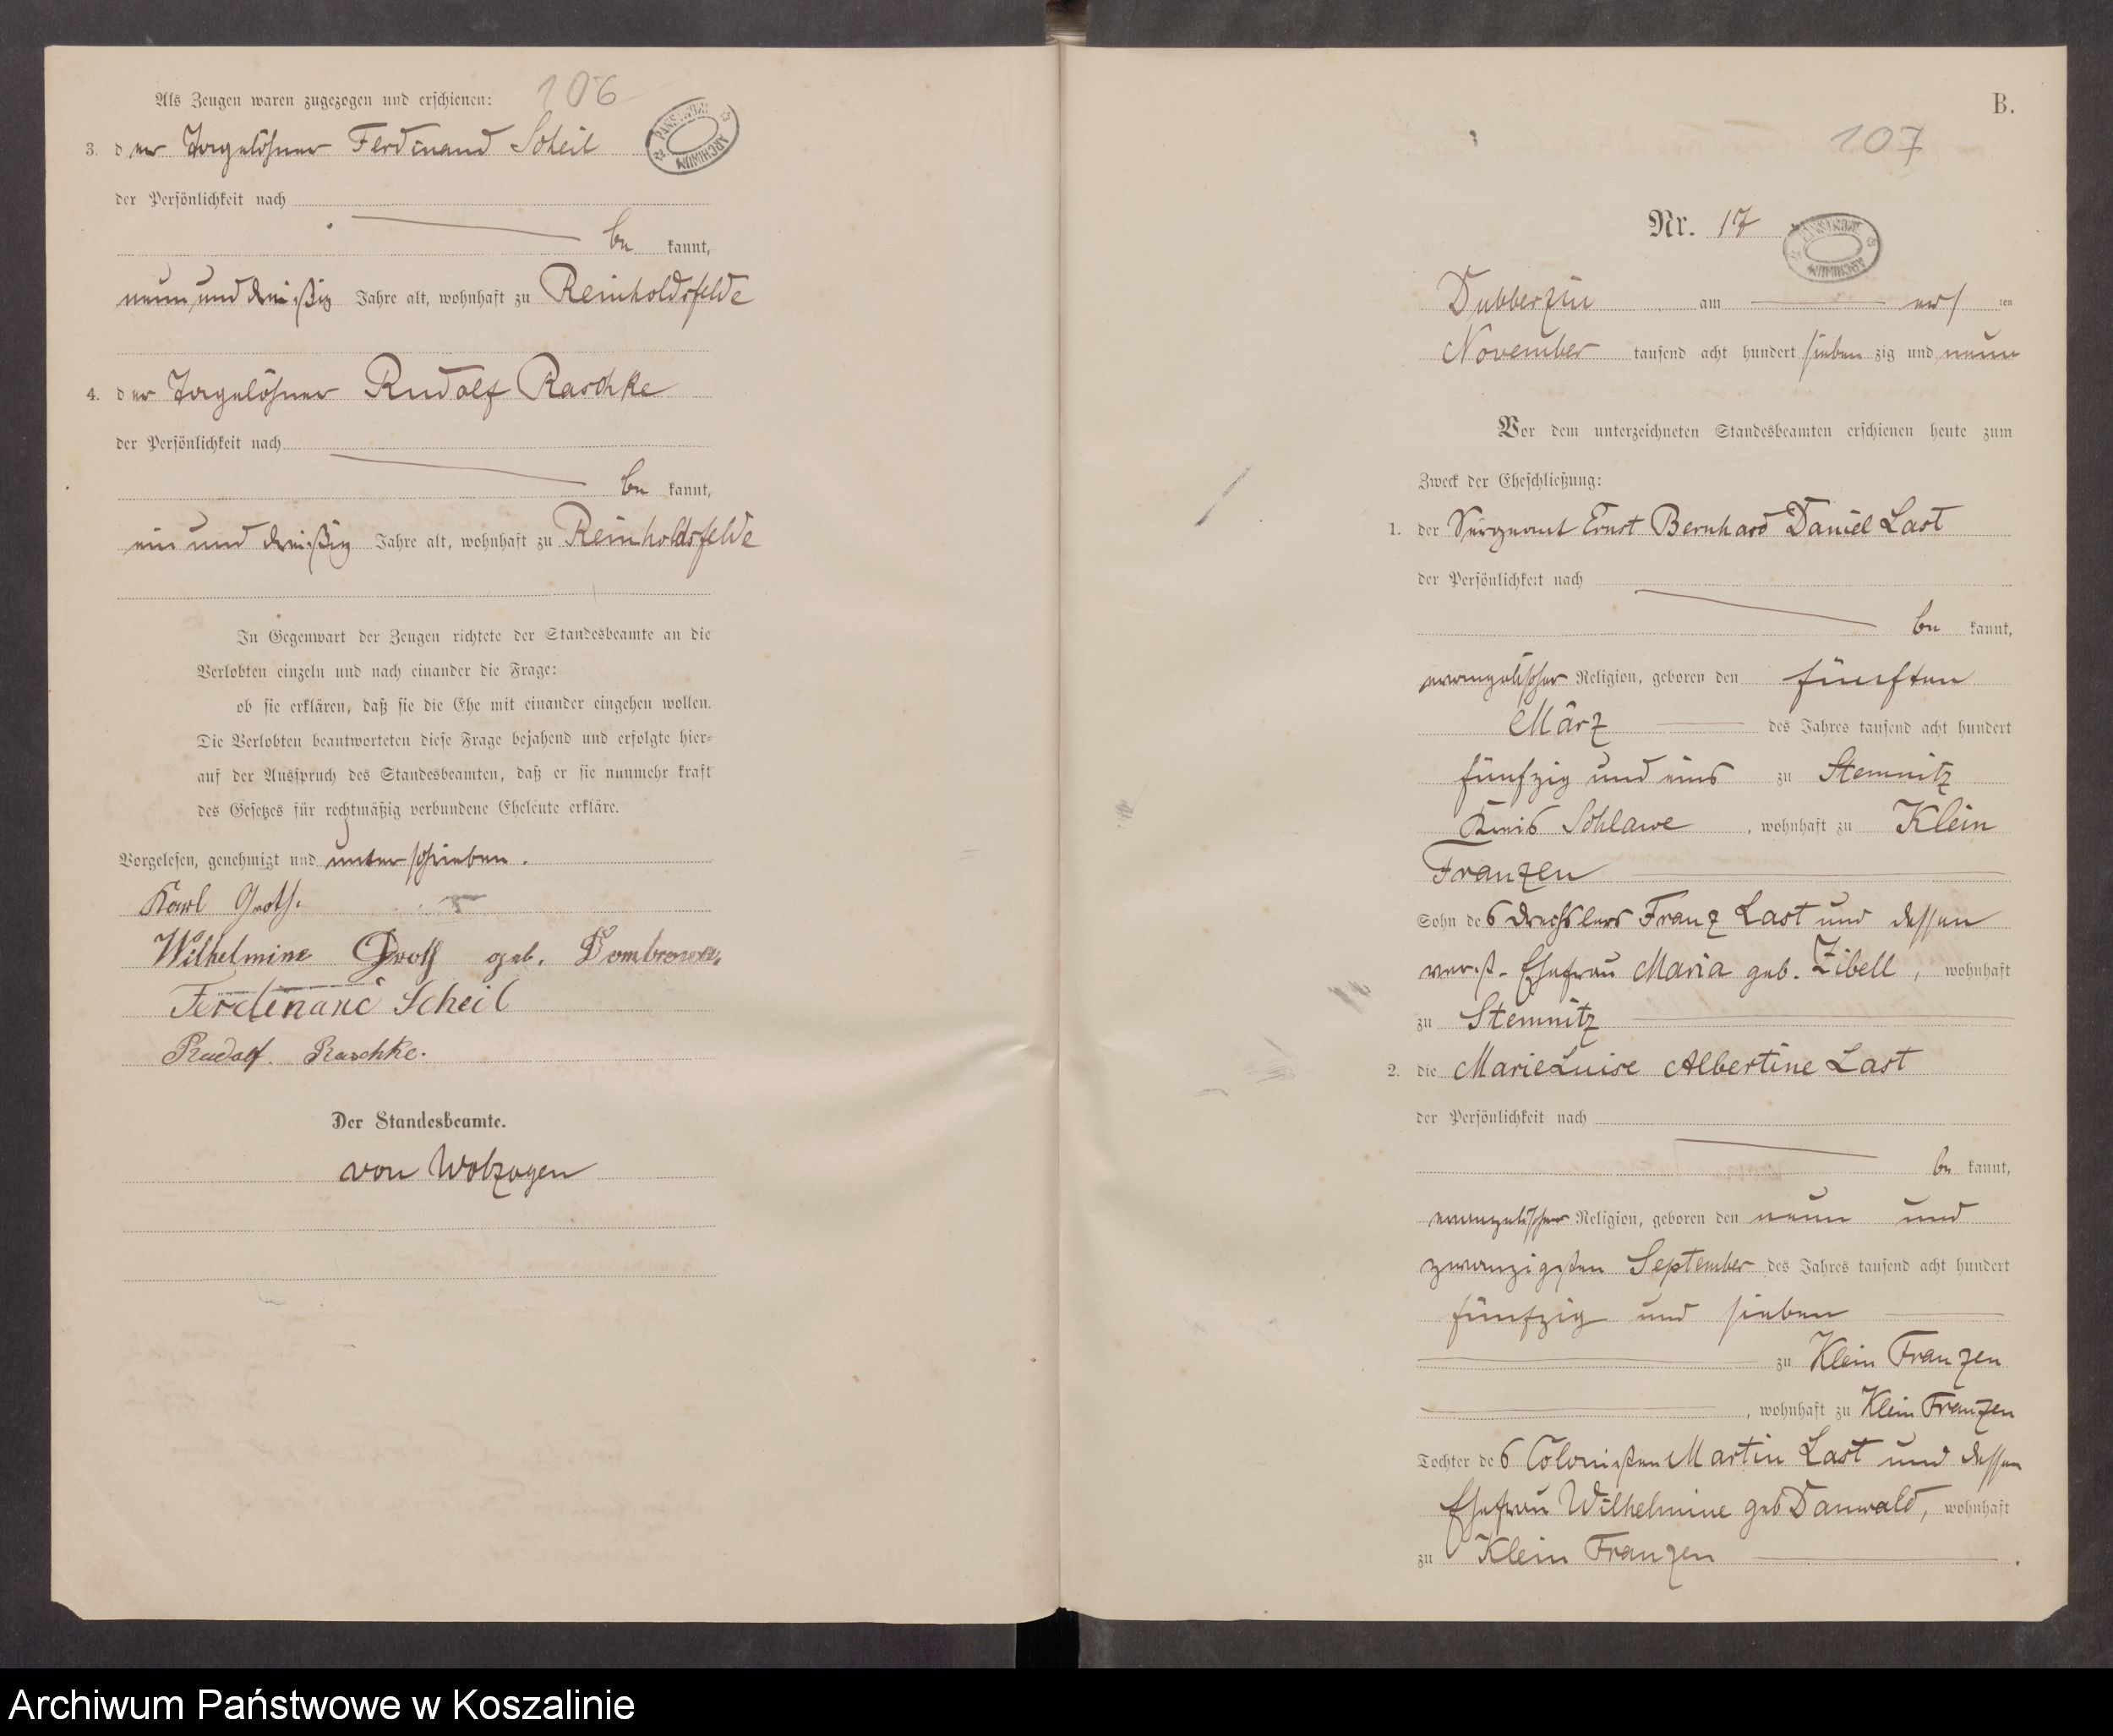 Als Zeugen waren zugezogen und erschienen:
106
PAŃSTWOWE ARCHIWUM
3. der Tagelöhner Ferdinand Scheil
der Persönlichkeit nach
be kannt,
neun und dreißig Jahre alt, wohnhaft zu Reinholdsfelde
4. der Tagelöhner Rudolf Raschke
der Persönlichkeit nach
be kannt,
ein und dreißig Jahre alt, wohnhaft zu Reinholdsfelde
In Gegenwart der Zeugen richtete der Standesbeamte an die
Verlobten einzeln und nach einander die Frage:
ob sie erklären, daß sie die Ehe mit einander eingehen wollen.
Die Verlobten beantworteten diese Frage bejahend und erfolgte hier-
auf der Ausspruch des Standesbeamten, daß er sie nunmehr kraft
des Gesetzes für rechtmäßig verbundene Eheleute erkläre.
Vorgelesen, genehmigt und unterschrieben.
Karl Groth.
Wilhelmine Groth geb.
Ferdinand Scheil
Rudolf Raschke.
Der Standesbeamte.
von Wolzogen
B.
107
Nr. 17
Dubberzin am ersten
November tausend acht hundert sieben zig und neun
Vor dem unterzeichneten Standesbeamten erschienen heute zum
Zweck der Eheschließung:
1. der Sergeant Ernst Bernhard Daniel Last
der Persönlichkeit nach
be kannt,
evangelischer Religion, geboren den fünften
März des Jahres tausend acht hundert
fünfzig und eins zu Stemnitz
Kreis Schlawe, wohnhaft zu Klein
Franzen
Sohn des Drechslers Franz Last und dessen
verst. Ehefrau Maria geb. Zibell, wohnhaft
zu Stemnitz
2. die Marie Luise Albertine Last
der Persönlichkeit nach
be kannt,
evangelischer Religion, geboren den neun und
zwanzigsten September des Jahres tausend acht hundert
fünfzig und sieben
zu Klein Franzen
, wohnhaft zu Klein Franzen
Tochter des Colonisten Martin Last und dessen
Ehefrau Wilhelmine geb Danwald, wohnhaft
zu Klein Franzen.
Archiwum Państwowe w Koszalinie